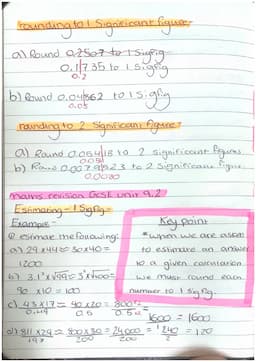 rounding to 1 Significant figure
a) Round 0.2507 to 1 sigfig
0.1735 to 1 sigfig
0.2
b) Round 0.04862 to 1 sigfig
0.05
rounding to 2 Significant figure
a) Round to 2 significant figures
b) Round to 2 significant figure
0.0080
maths revision GCSE unit 9.2
Estimating - 1 Sig fig -
Example -
Q estimate the following:
a) 29 x 44 ≈ 30 x 40 =
1200
= 3 x √100 =
90 x 10 = 100
c) 43 x 17 ≈ 40 x 20 = 800
0.5 0.5
1600 = 1600
d) 811 x 29 ≈ 800 x 30 = 24000 = 240 = 120
197 200 200 2
Key point
*when we are asked
to estimate an answer
to a given calculation
we must round each
number to 1 sig fig.